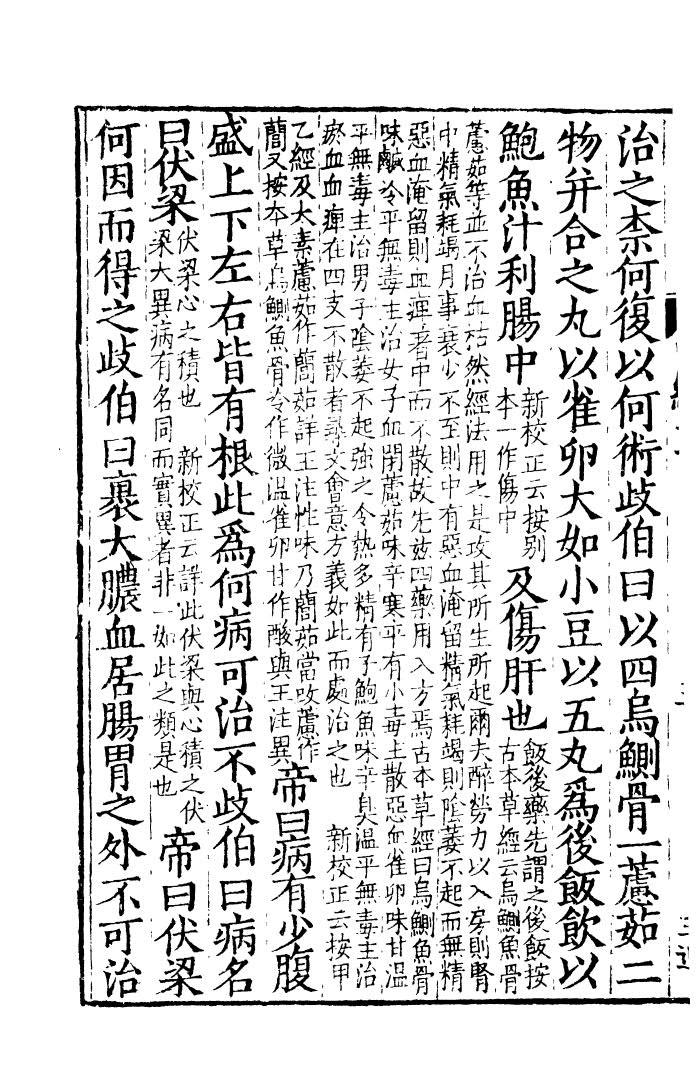 治之柰何復以何術歧伯曰以四烏鰂骨一藘茹二
物并合之丸以雀卵大如小豆以五丸爲後飯飲以
鮑魚汁利腸中
新校正云按别
本一作傷中
及傷肝也
飯後藥先謂之後飯按
古本草經云烏鰂魚骨
藘茹等並不治血枯然經法用之是攻其所生所起爾夫醉勞力以入房則腎
中精氣耗竭月事衰少不至則中有惡血淹留精氣耗竭則陰萎不起而無精
惡血淹留則血痺著中而不散故先兹四藥用入方焉古本草經曰烏鰂魚骨
味鹹冷平無毒主治女子血閉藘茹味辛寒平有小毒主散惡血雀卵味甘溫
平無毒主治男子陰萎不起強之令熱多精有子鮑魚味辛臭溫平無毒主治
瘀血血痺在四支不散者尋文會意方義如此而處治之也 新校正云按甲
乙經及大素藘茹作䕡茹詳王注性味乃䕡茹當改藘作
䕡又按本草烏鰂魚骨冷作微溫雀卵甘作酸與王注異
帝曰病有少腹
盛上下左右皆有根此爲何病可治不歧伯曰病名
曰伏梁
伏梁心之積也 新校正云詳此伏梁與心積之伏
梁大異病有名同而實異者非一如此之類是也
帝曰伏梁
何因而得之歧伯曰裹大膿血居腸胃之外不可治